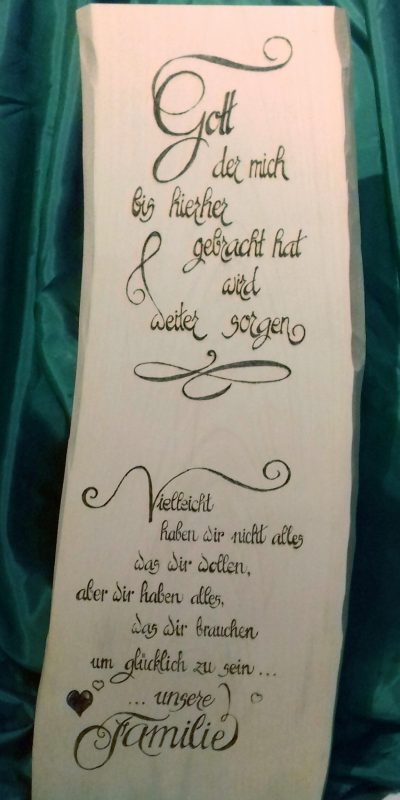 Gott
der mich
bis hierher
gebracht hat
wird
weiter sorgen
Vielleicht
haben wir nicht alles
was wir wollen,
aber wir haben alles,
was wir brauchen
um glücklich zu sein...
... unsere
Familie